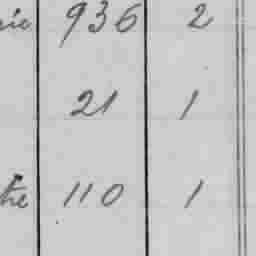 936 2
21 1
the 110 1